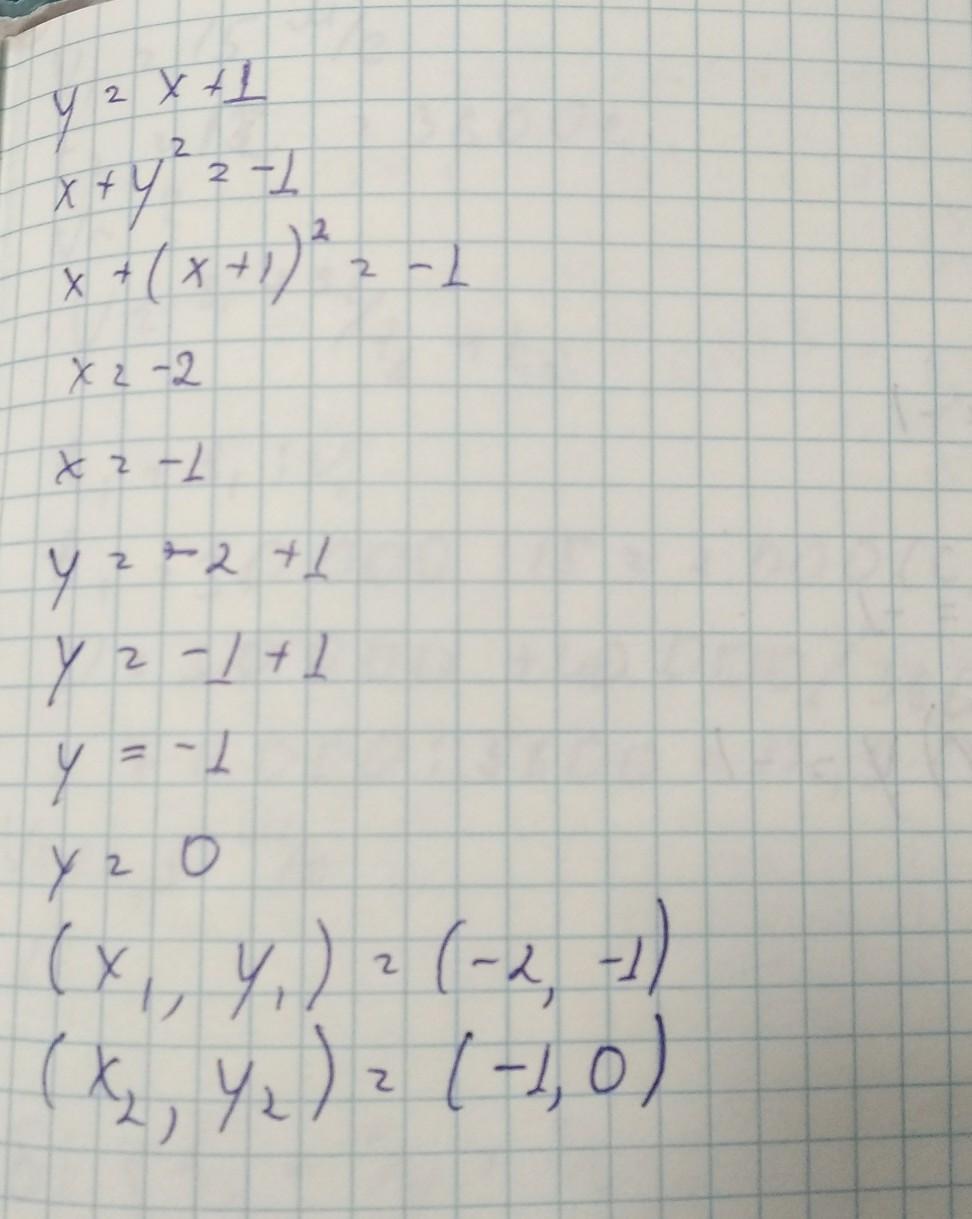 y = x + 1
x + y² = -1
x + (x + 1)² = -1
x = -2
x = -1
y = -2 + 1
y = -1 + 1
y = -1
y = 0
(x₁, y₁) = (-2, -1)
(x₂, y₂) = (-1, 0)